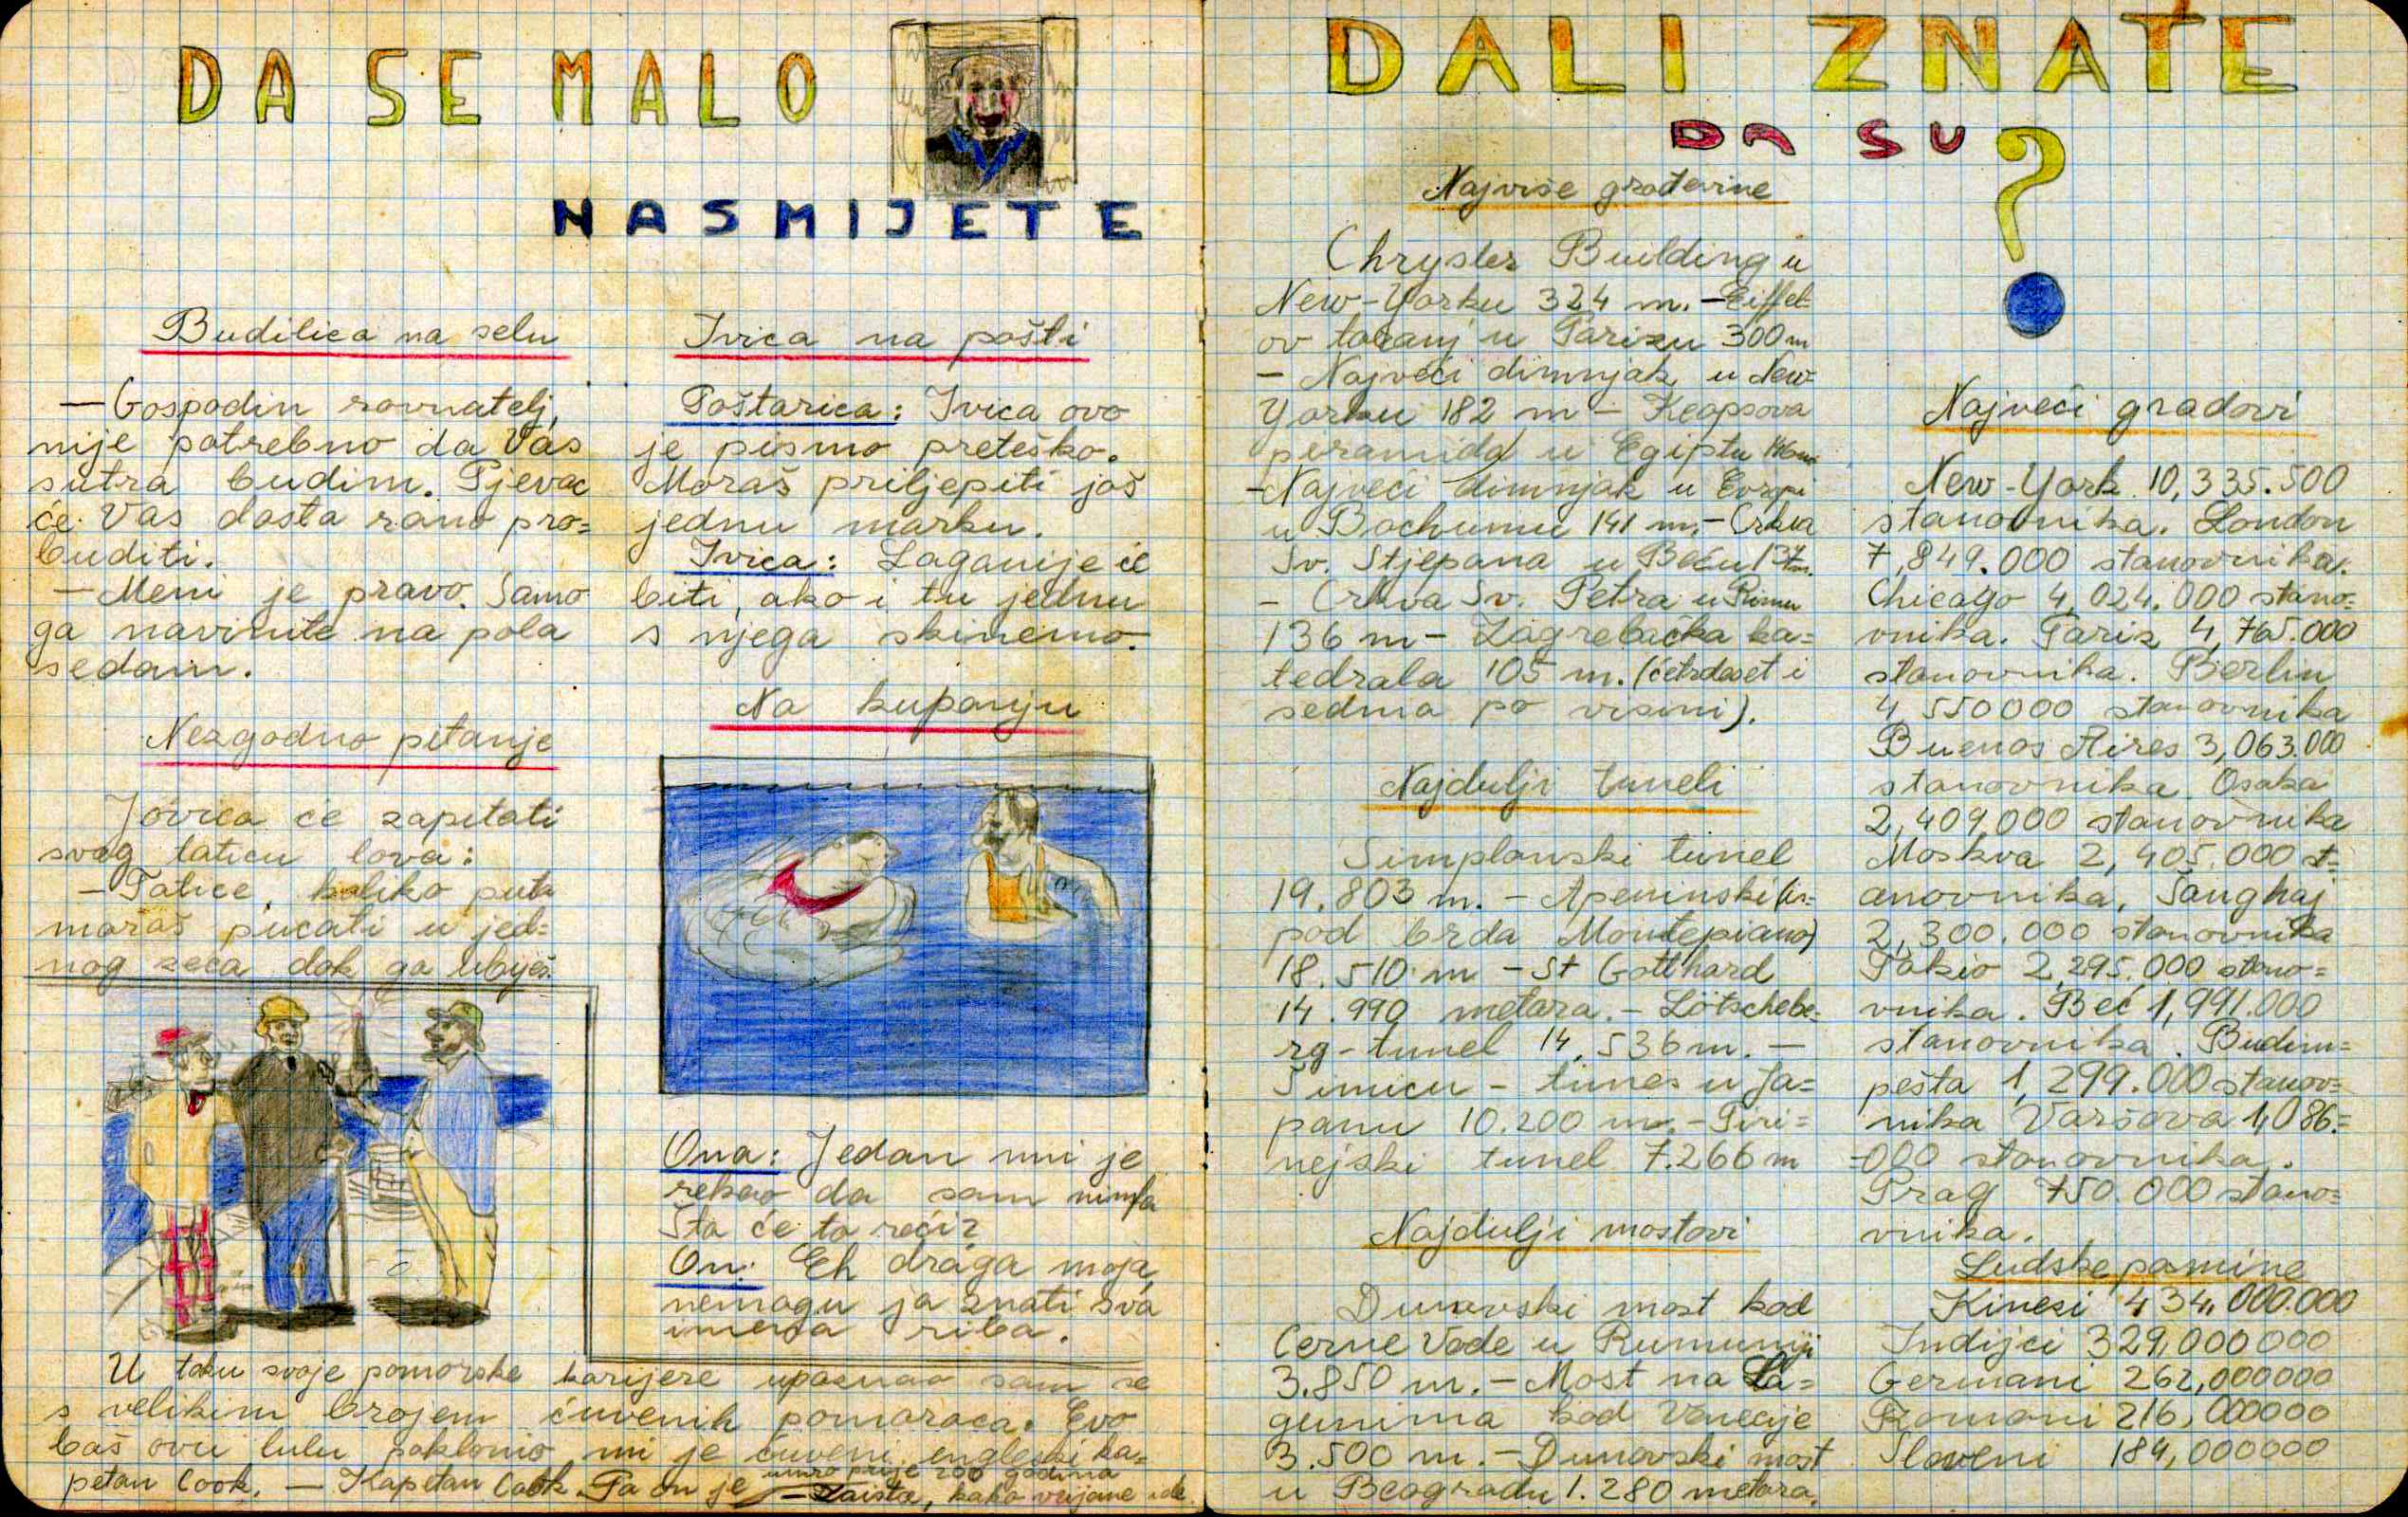 DA SE MALO
NASMIJETE
Budilica na selu
— Gospodin ravnatelj,
nije potrebno da Vas
sutra budim. Pjevac
će Vas dosta rano pro=
buditi.
— Meni je pravo. Samo
ga navinite na pola
sedam.
Nezgodno pitanje
Jovica će zapitati
svog taticu lova:
— Tatice, koliko puta
moraš pucati u jed=
nog zeca dok ga ubiješ.
Ivica na pošti
Poštarica: Ivica ovo
je pismo preteško.
Moraš priljepiti još
jednu marku.
Ivica: Laganije će
biti, ako i tu jednu
s njega skinemo.
Na kupanju
Ona: Jedan mi je
rekao da sam nimfa
Šta će to reći?
On: Eh draga moja,
nemogu ja znati sva
imena riba.
U toku svoje pomorske karijere upoznao sam se
s velikim brojem čuvenih pomoraca. Evo
baš ovu lulu poklonio mi je čuveni engleski ka=
petan Cook. — Kapetan Cook. Pa on je umro prije 200 godina
— Zaista, kako vrijeme ide.
DALI ZNATE
DA SU ?
Najviše građevine
Chrysler Building u
New-Yorku 324 m. — Eiffel-
ov toranj u Parizu 300 m
— Najveći dimnjak u New-
Yorku 182 m — Keopsova
peramida u Egiptu 146 m
— Najveći dimnjak u Evropi
u Bochumu 141 m. — Crkva
Sv. Stjepana u Beču 137 m.
— Crkva Sv. Petra u Rimu
136 m — Zagrebačka ka=
tedrala 105 m. (četrdeset i
sedma po visini).
Najdulji tuneli
Simplonski tunel
19.803 m. — Apeninski (is=
pod brda Montepiano)
18.510 m — St Gotthard
14.990 metara. — Lötschebe=
rg-tunel 14.536 m. —
Šimicu — tunes u Ja=
panu 10.200 m. — Piri=
nejski tunel 7.266 m
Najdulji mostovi
Dunavski most kod
Černe Vode u Rumuniji
3.850 m. — Most na La=
gunima kod Venecije
3.500 m. — Dunavski most
u Beogradu 1.280 metara.
Najveći gradovi
New-York 10,335.500
stanovnika. London
7,849.000 stanovnika.
Chicago 4,024.000 stano=
vnika. Pariz 4,765.000
stanovnika. Berlin
4 550000 stanovnika
Buenos Aires 3,063.000
stanovnika. Osaka
2,409,000 stanovnika
Moskva 2,405.000 st=
anovnika, Šanghaj
2,300.000 stanovnika
Tokio 2,295,000 stano=
vnika. Beč 1,991.000
stanovnika. Budim=
pešta 1,299.000 stanov=
nika Varšava 1,086.=
=000 stanovnika.
Prag 750.000 stano=
vnika.
Ludske pasmine
Kinezi 434,000.000
Indijci 329,000000
Germani 262,000000
Romani 216,000000
Slaveni 184,000000